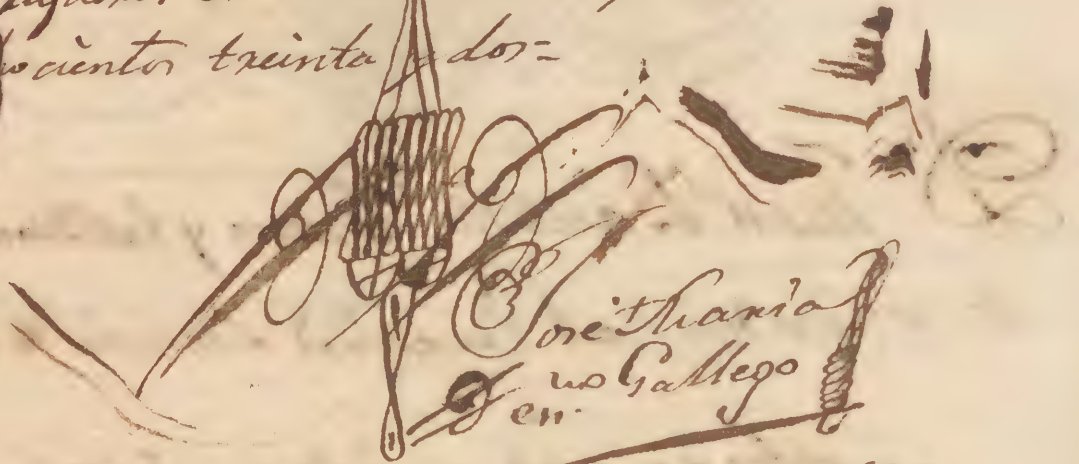 ocientos treinta y dos=
José Maria
no Gallego
en